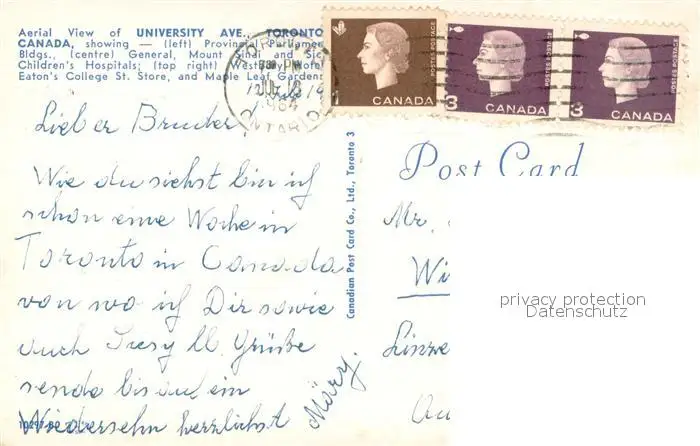 Aerial View of UNIVERSITY AVE., TORONTO
CANADA, showing — (left) Provincial Parliament
Bldgs., (centre) General, Mount Sinai and Sick
Children's Hospitals; (top right) Westbury Hotel,
Eaton's College St. Store, and Maple Leaf Gardens
PM
1964
ONTARIO
CANADA
POSTES POSTAGE
3
CANADA
POSTES POSTAGE
3
CANADA
Lieber Bruder,
Wie du siehst bin ich
schon eine Woche in
Toronto in Canada
von wo ich Dir sowie
auch Tresy ll. Grüße
sende bis auf ein
Wiedersehn herzlichst
Märy.
Canadian Post Card Co., Ltd., Toronto 3
Post Card
Mr.
Wi
Linze
Au
privacy protection
Datenschutz